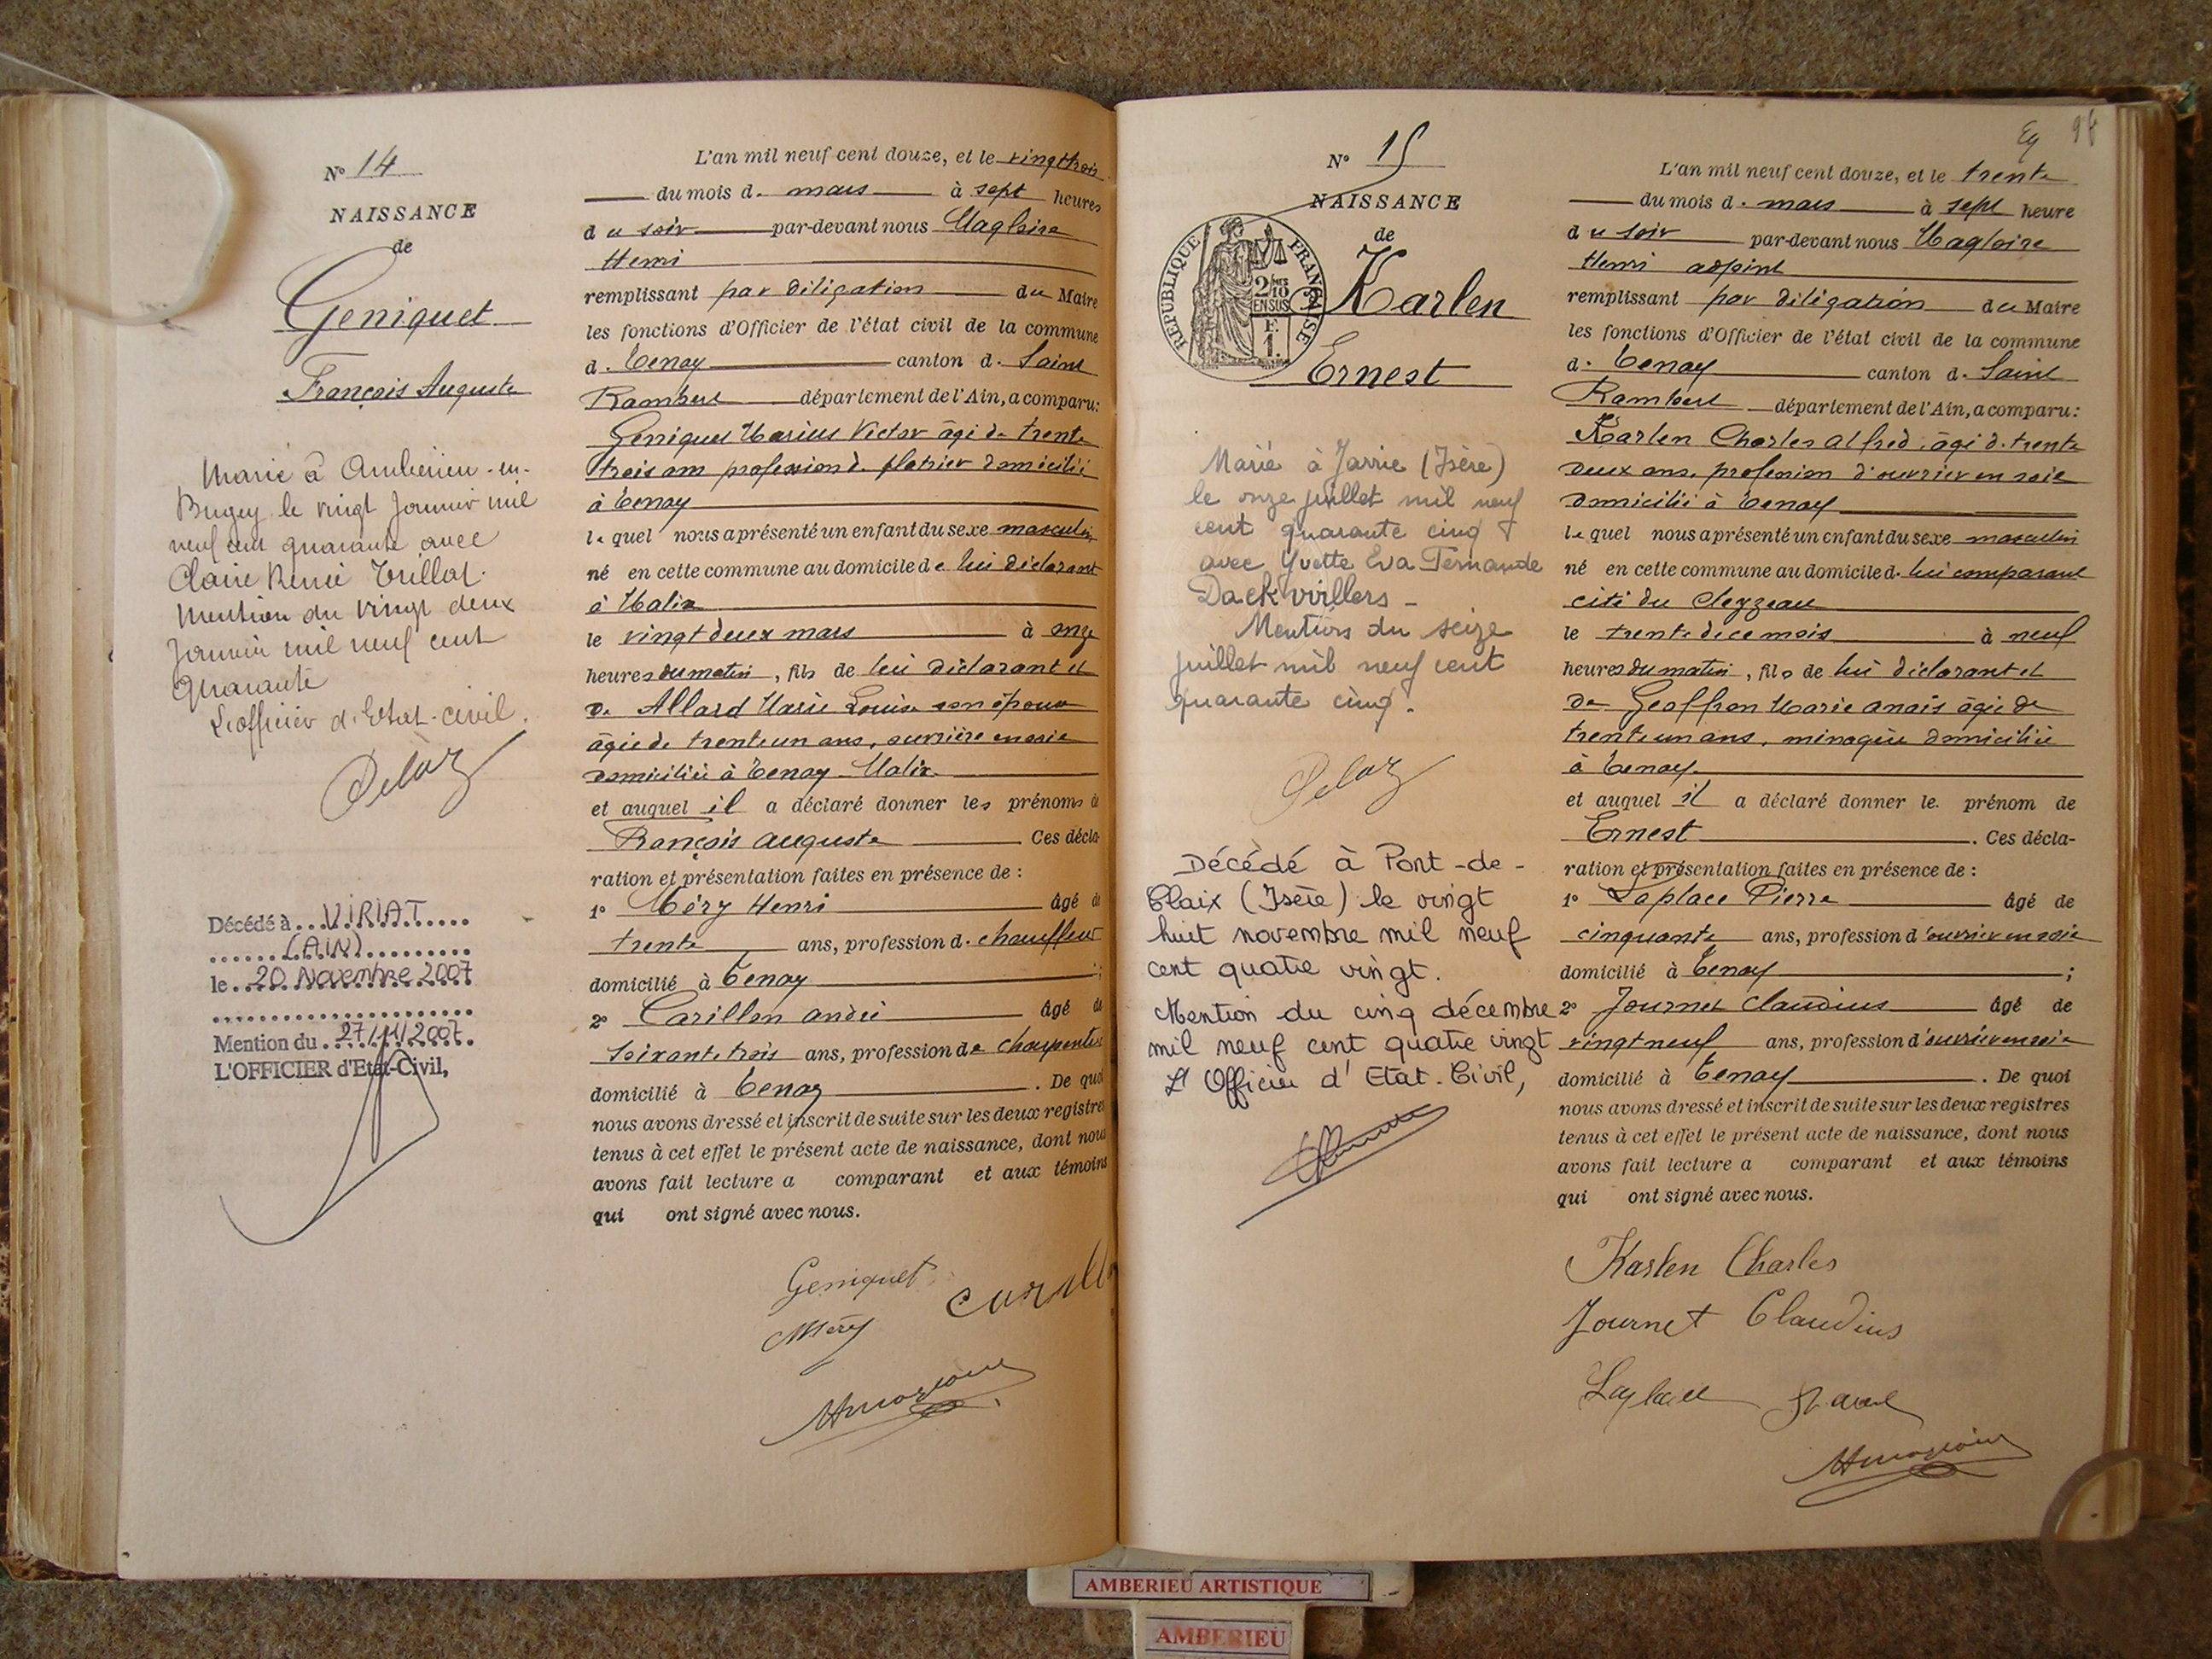 N° 14
NAISSANCE
de
Geniquet
François Auguste
Marié à Ambérieu-en-
Bugey le vingt Janvier mil
neuf cent quarante avec
Claire Renée Trillat.
Mention du vingt deux
Janvier mil neuf cent
quarante
L'officier d'Etat-civil.
Décédé à VIRIAT
(AIN)
le 20 Novembre 2007
Mention du 27/11/2007.
L'OFFICIER d'Etat-Civil,
L'an mil neuf cent douze, et le vingt trois
du mois d. mars à sept heures
du soir par-devant nous Magloire
Henri
remplissant par déligation du Maire
les fonctions d'Officier de l'état civil de la commune
d. Tenay canton d. Saint
Rambert département de l'Ain, a comparu:
Geniquet Marius Victor âgé de trente
trois ans profession d. platrier domicilié
à Tenay
lequel nous a présenté un enfant du sexe masculin
né en cette commune au domicile de lui déclarant
à Malix
le vingt deux mars à onze
heures du matin, fils de lui déclarant et
de Allard Marie Louise son épouse
âgée de trente un ans, ouvrière en soie
domiciliée à Tenay Malix
et auquel il a déclaré donner les prénoms de
François Auguste Ces décla-
ration et présentation faites en présence de :
1° Méry Henri âgé de
trente ans, profession d. chauffeur
domicilié à Tenay ;
2° Carillon André âgé de
soixante trois ans, profession de charpentier
domicilié à Tenay . De quoi
nous avons dressé et inscrit de suite sur les deux registres
tenus à cet effet le présent acte de naissance, dont nous
avons fait lecture a comparant et aux témoins
qui ont signé avec nous.
Geniquet
Méry
N° 15
NAISSANCE
de
Karlen
Ernest
REPUBLIQUE FRANÇAISE
2/10
EN SUS
F.
1.
Marié à Jarrie (Isère)
le onze juillet mil neuf
cent quarante cinq
avec Yvette Eva Fernande
Dackvvillers -
Mentions du seize
juillet mil neuf cent
quarante cinq.
Décédé à Pont-de-
Claix (Isère) le vingt
huit novembre mil neuf
cent quatre vingt.
Mention du cinq décembre
mil neuf cent quatre vingt
L'Officier d'Etat.Civil,
L'an mil neuf cent douze, et le trente
du mois d. mars à sept heure
du soir par-devant nous Magloire
Henri adjoint
remplissant par déligation du Maire
les fonctions d'Officier de l'état civil de la commune
d. Tenay canton d. Saint
Rambert département de l'Ain, a comparu:
Karlen Charles Alfred, âgé d. trente
deux ans, profession d'ouvrier en soie
domicilié à Tenay
lequel nous a présenté un enfant du sexe masculin
né en cette commune au domicile d. lui comparant
cité du Cleyzeau
le trente de ce mois à neuf
heures du matin, fils de lui déclarant et
de Geoffron Marie Anaïs âgée de
trente un ans, ménagère domiciliée
à Tenay
et auquel il a déclaré donner le prénom de
Ernest . Ces décla-
ration et présentation faites en présence de :
1° Laplace Pierre âgé de
cinquante ans, profession d'ouvrier en soie
domicilié à Tenay ;
2° Journet Claudius âgé de
vingt neuf ans, profession d'ouvrier en soie
domicilié à Tenay . De quoi
nous avons dressé et inscrit de suite sur les deux registres
tenus à cet effet le présent acte de naissance, dont nous
avons fait lecture a comparant et aux témoins
qui ont signé avec nous.
Karlen Charles
Journet Claudius
Laplace
AMBERIEU ARTISTIQUE
AMBERIEU